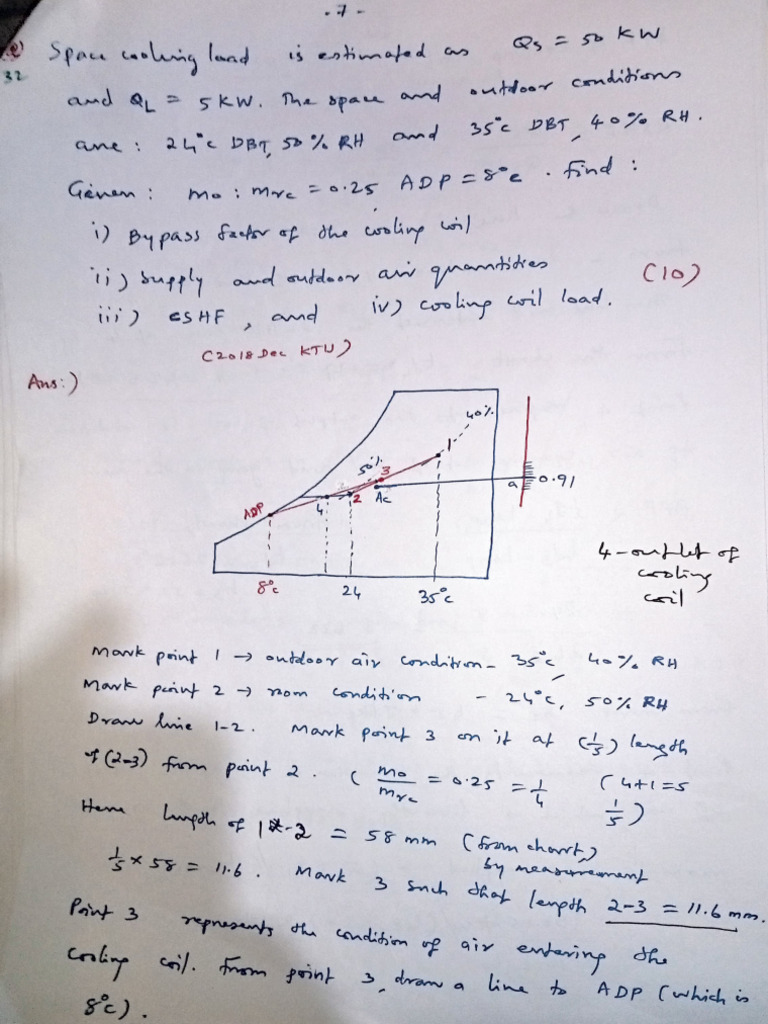 - 7 -
Q)
32
Space cooling load is estimated as Qs = 50 KW
and QL = 5 KW. The space and outdoor conditions
are : 24°C DBT, 50% RH and 35°C DBT, 40% RH.
Given : mo : mrc = 0.25 ADP = 8°C . Find :
i) Bypass factor of the cooling coil
ii) Supply and outdoor air quantities
(10)
iii) ESHF , and iv) cooling coil load.
(2018 Dec KTU)
Ans:)
40%
1
50%
3
a 0.91
ADP
4
2
Ac
8°C
24
35°C
4-outlet of
cooling
coil
Mark point 1 → outdoor air condition - 35°C, 40% RH
Mark point 2 → room condition - 24°C, 50% RH
Draw line 1-2. Mark point 3 on it at (1/5) length
of (2-3) from point 2. ( mo/mrc = 0.25 = 1/4 ( 4+1=5
1/5 )
Here length of 1-2 = 58 mm (from chart,)
by measurement
1/5 × 58 = 11.6 . Mark 3 such that length 2-3 = 11.6 mm.
Point 3 represents the condition of air entering the
cooling coil. From point 3, draw a line to ADP (which is
8°C).